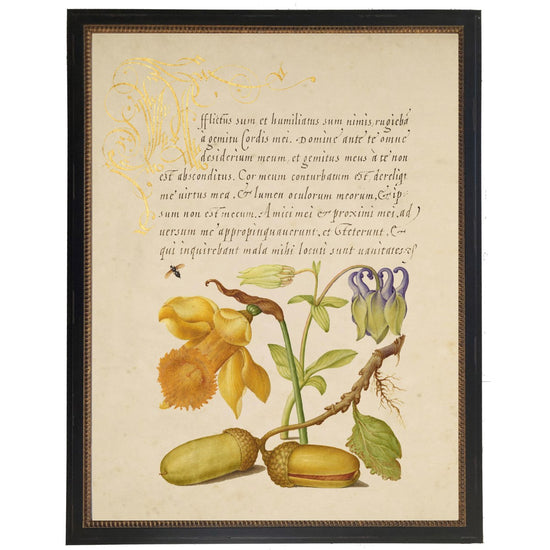 Afflictus sum et humiliatus sum nimis, rugiebā
a gemitu Cordis mei. Domine ante te omne
desiderium meum, et gemitus meus a te non
est absconditus. Cor meum conturbatum est, dereliqt
me virtus mea, & lumen oculorum meorum, & ip-
sum non est mecum. Amici mei & proximi mei, ad
versum me appropinquauerunt, et steterunt. &
qui inquirebant mala mihi locuti sunt vanitates